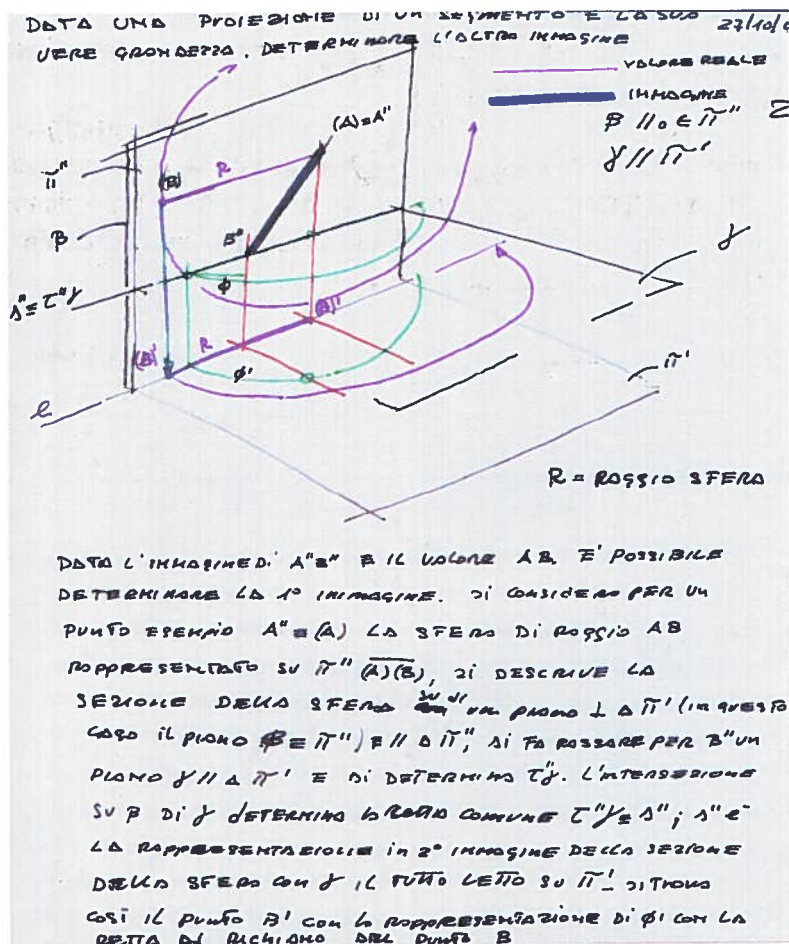 DATA UNA PROIEZIONE DI UN SEGMENTO E LA SUA
VERE GRANDEZZA, DETERMINARE L'ALTRA IMMAGINE
27/10/
VALORE REALE
IMMAGINE
β // o ∈ π"
2
γ // π'
(A)≡A"
π"
(B)
R
β
B"
γ
s"≡τ"γ
φ
(A)'
(B)'
R
φ'
π'
l
R = RAGGIO SFERA
DATA L'IMMAGINE DI A"B" E IL VALORE AB E' POSSIBILE
DETERMINARE LA 1° IMMAGINE. SI CONSIDERA PER UN
PUNTO ESEMPIO A"≡(A) LA SFERA DI RAGGIO AB
RAPPRESENTATO SU π" (A)(B), SI DESCRIVE LA
SEZIONE DELLA SFERA SU DI UN PIANO ⊥ A π' (IN QUESTO
CASO IL PIANO β≡π") E // A π", SI FA PASSARE PER B" UN
PIANO γ // A π' E SI DETERMINA τ"γ. L'INTERSEZIONE
SU β DI γ DETERMINA LA RETTA COMUNE τ"γ≡s"; s" e'
LA RAPPRESENTAZIONE in 2° IMMAGINE DELLA SEZIONE
DELLA SFERA CON γ IL TUTTO LETTO SU π'. SI TROVA
COSÌ IL PUNTO B' CON LA RAPPRESENTAZIONE DI φ' CON LA
RETTA DI RICHIAMO DEL PUNTO B